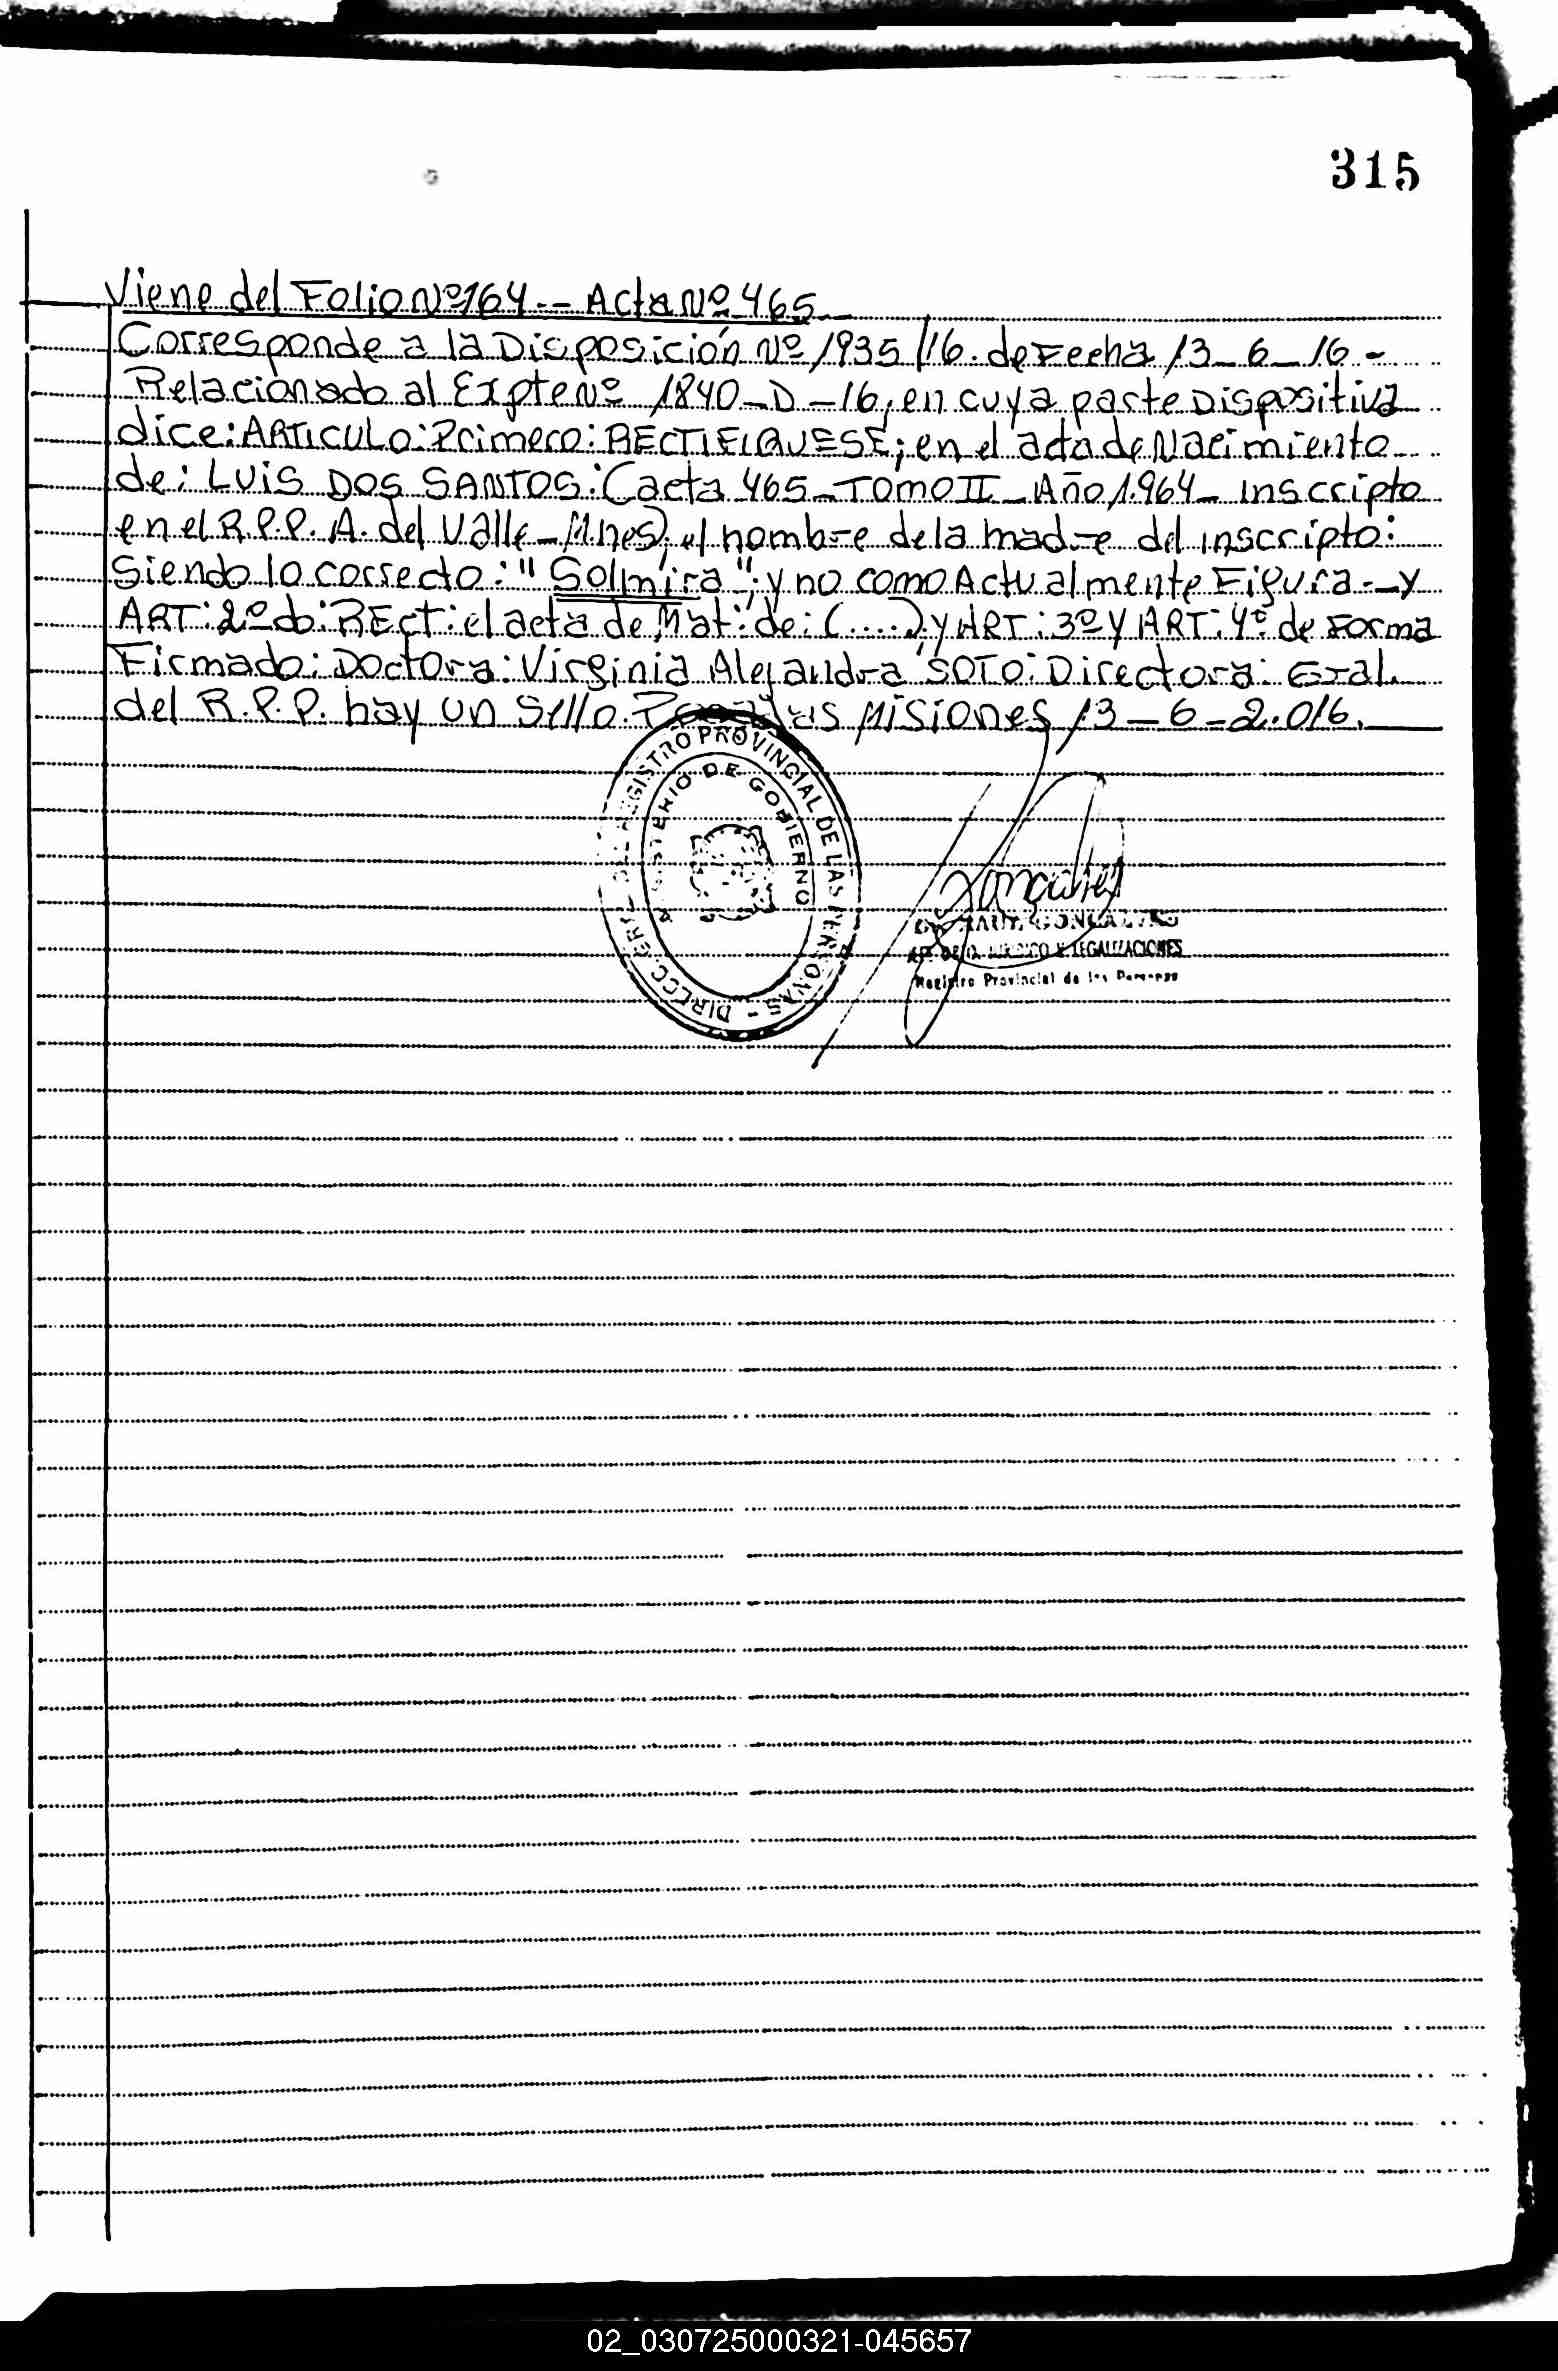 315
Viene del Folio Nº 164 -- Acta Nº 465
Corresponde a la Disposición Nº 1935/16. de Fecha 13-6-16.-
Relacionado al Expte Nº 1840-D-16, en cuya parte Dispositiva
dice: ARTICULO: Primero: RECTIFIQUESE; en el acta de Nacimiento
de: LUIS DOS SANTOS: (acta 465-TOMO II-Año 1.964- inscripto
en el R.P.P. A. del Valle-Mnes), el nombre de la madre del inscripto:
Siendo lo correcto: "Solmira"; y no como Actualmente Figura.-y
ART: 2º do: RECT: el acta de Mat: de: (....). y ART: 3º Y ART: 4º de Forma
Firmado: Doctora: Virginia Alejandra SOTO: Directora: Gral.
del R.P.P. hay un Sello. Posadas Misiones 13-6-2.016.
DIRECC. GRAL. DEL REGISTRO PROVINCIAL DE LAS PERSONAS -
MINISTERIO DE GOBIERNO
JURIDICO Y LEGALIZACIONES
Registro Provincial de las Personas
02_030725000321-045657